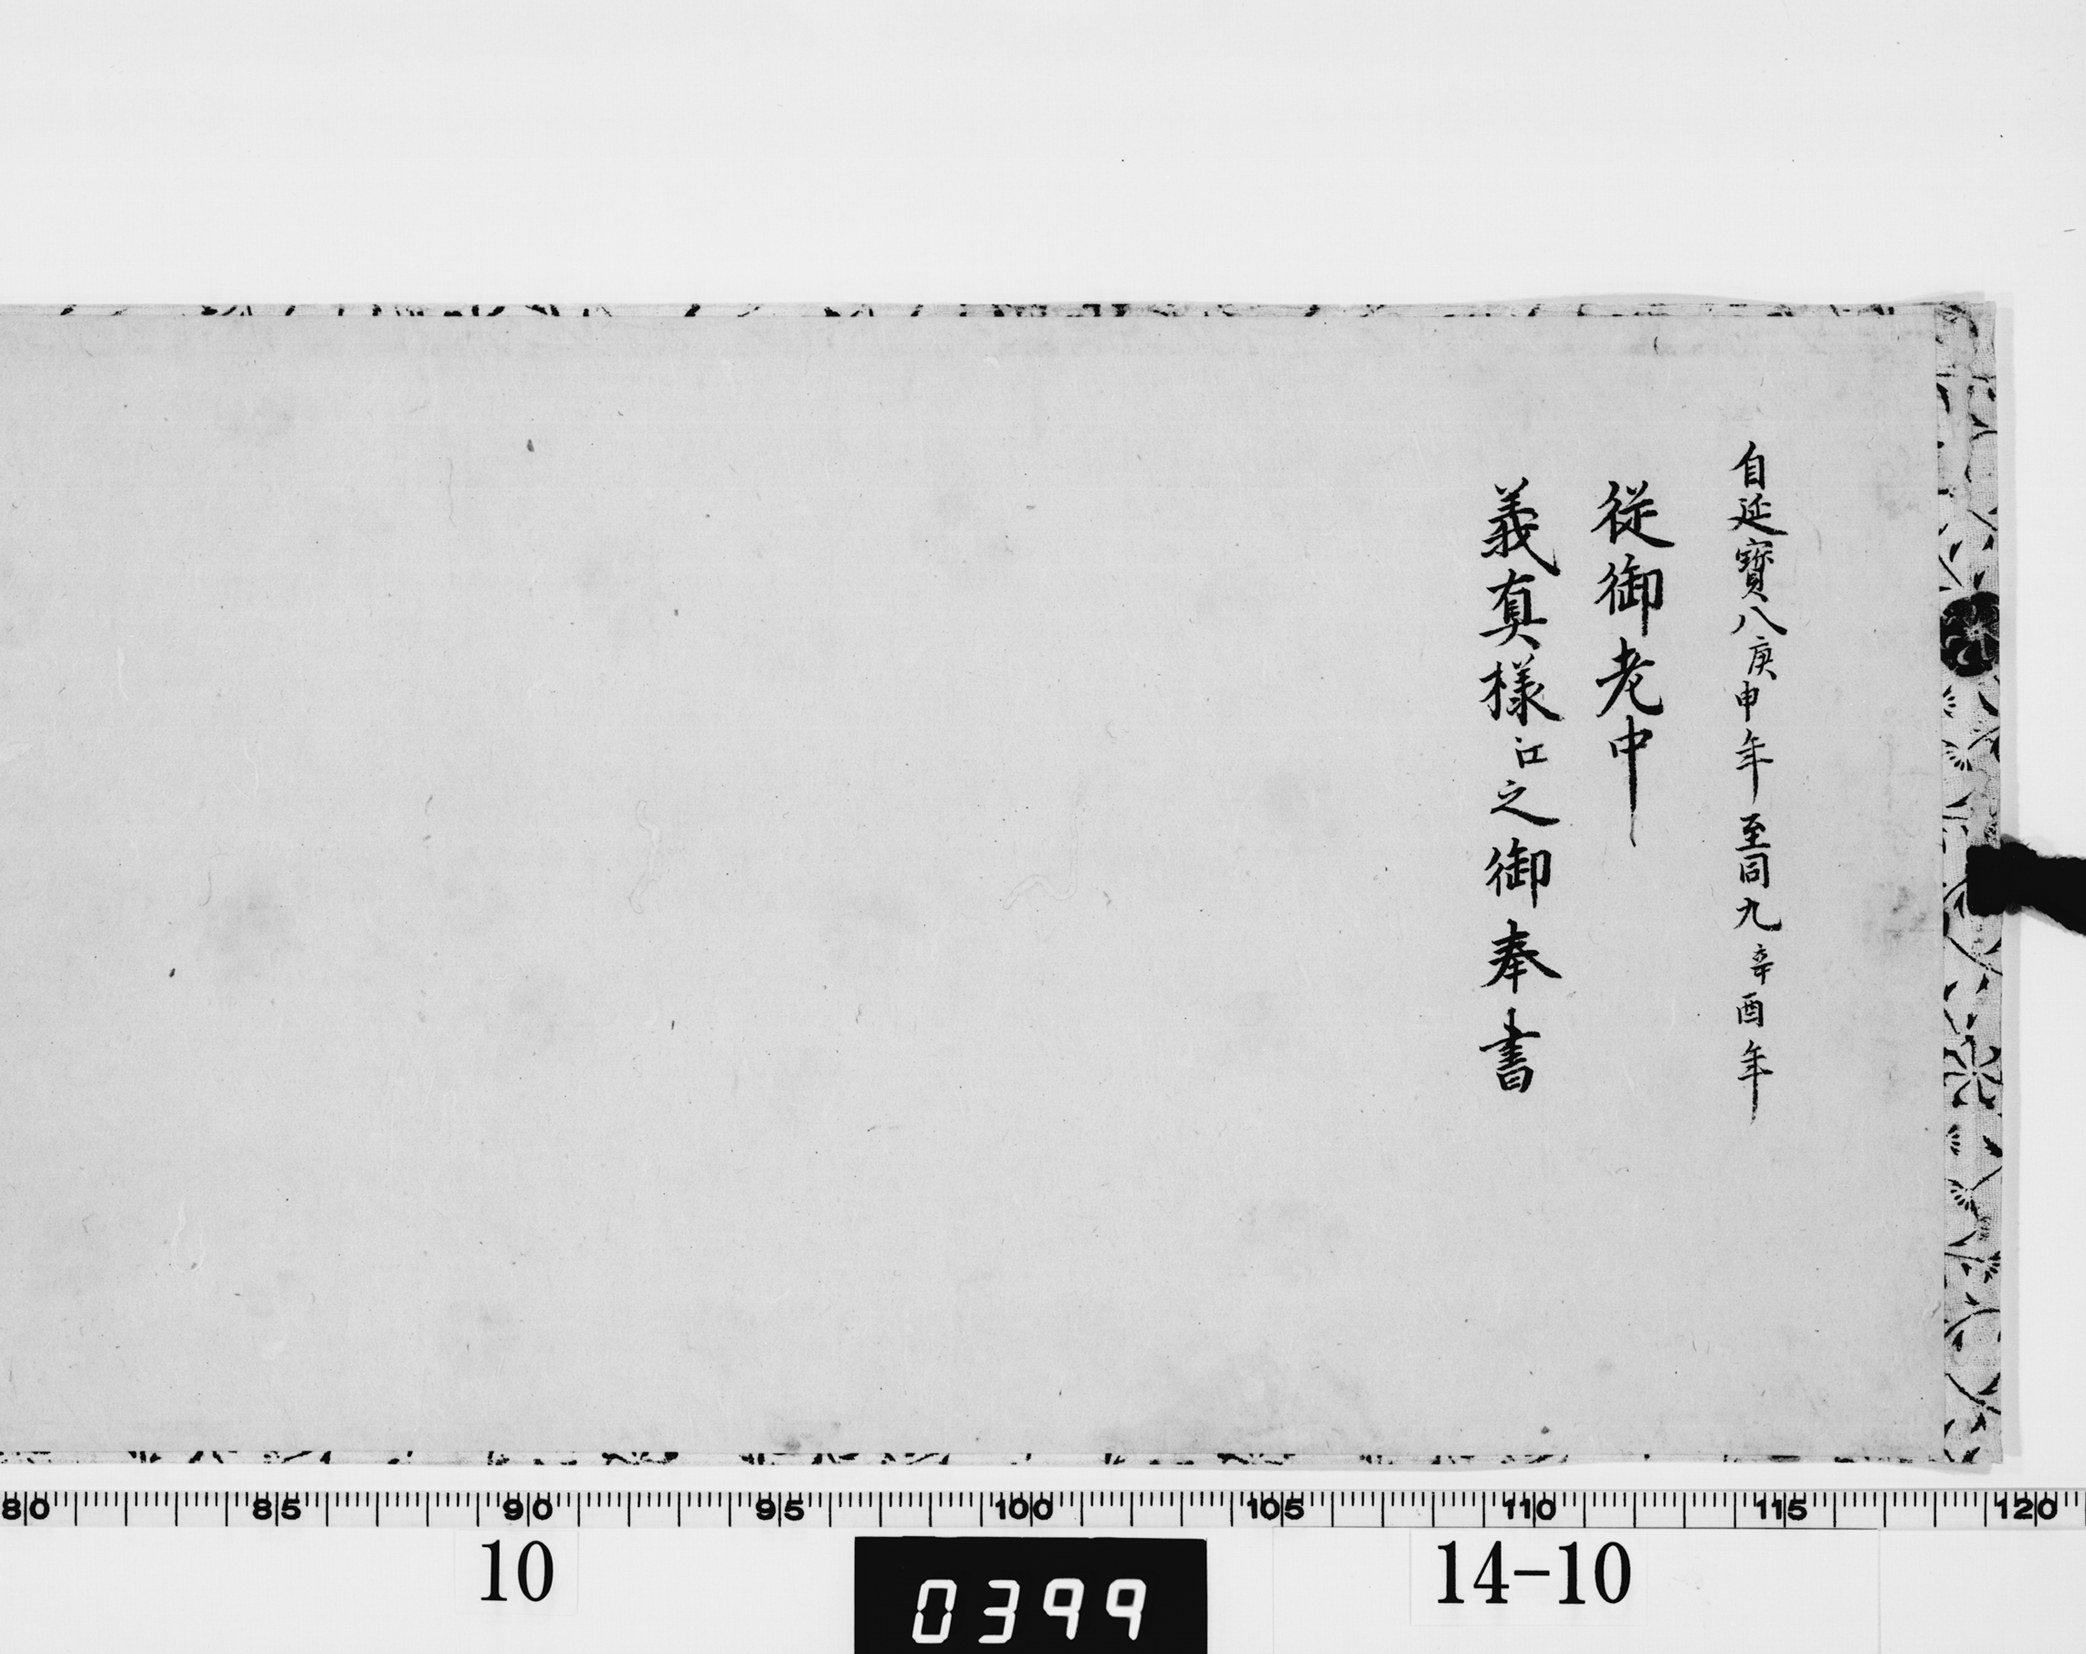 自延寳八庚申年至同九辛酉年
従御老中
義真様江之御奉書
80 85 90 95 100 105 110 115 120
10
0399
14-10